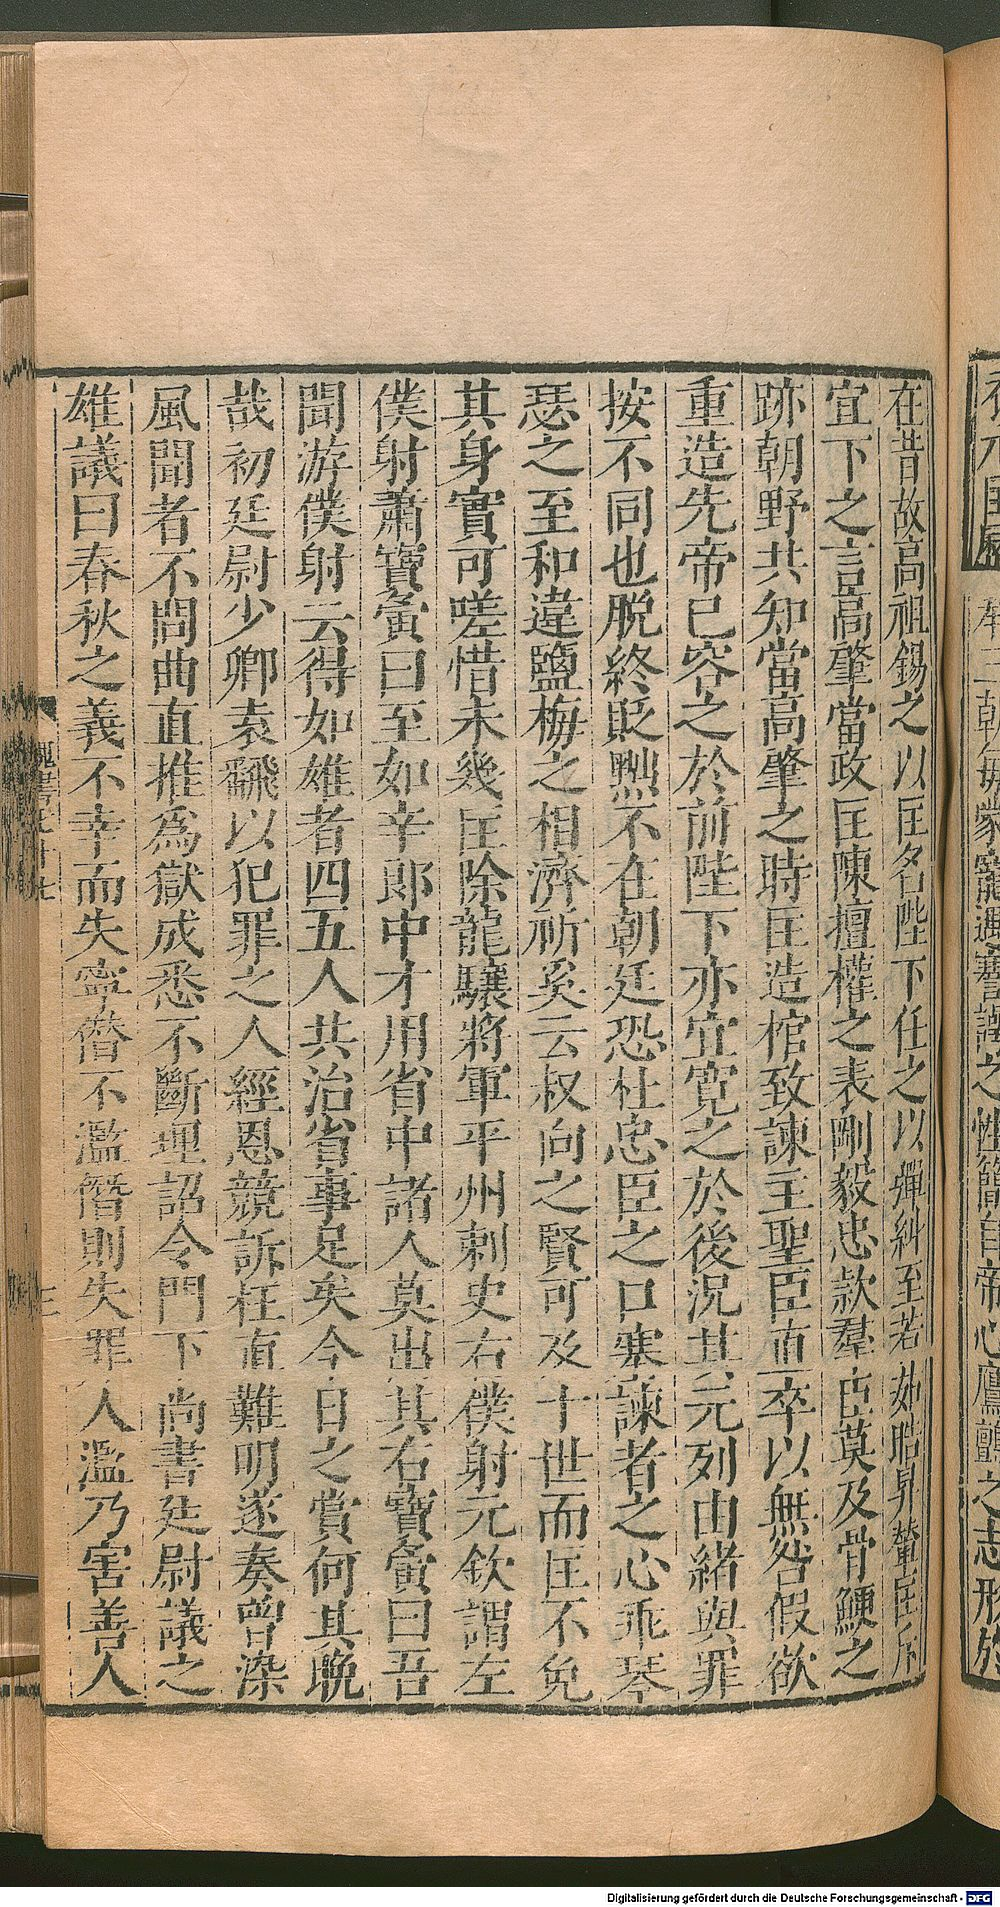 在昔故高祖錫之以匡名陛下任之以彈糾至若茹皓昇輦匡斥
宜下之言高肇當政匡陳擅權之表剛毅忠款羣臣莫及骨鯁之
跡朝野共知當高肇之時匡造棺致諫主聖臣直卒以無咎假欲
重造先帝已容之於前陛下亦宜寬之於後況其元列由緒與罪
按不同也脫終貶黜不在朝廷恐杜忠臣之口塞諫者之心乖琴
瑟之至和違鹽梅之相濟祈奚云叔向之賢可及十世而匡不免
其身實可嗟惜未幾匡除龍驤將軍平州刺史右僕射元欽謂左
僕射蕭寶夤曰至如辛郎中才用省中諸人莫出其右寶夤曰吾
聞游僕射云得如雄者四五人共治省事足矣今日之賞何其晩
哉初廷尉少卿袁翻以犯罪之人經恩競訴枉直難明遂奏曾染
風聞者不問曲直推為獄成悉不斷理詔令門下尚書廷尉議之
雄議曰春秋之義不幸而失寧僭不濫僭則失罪人濫乃害善人
魏書七十七
Digitalisierung gefördert durch die Deutsche Forschungsgemeinschaft - DFG